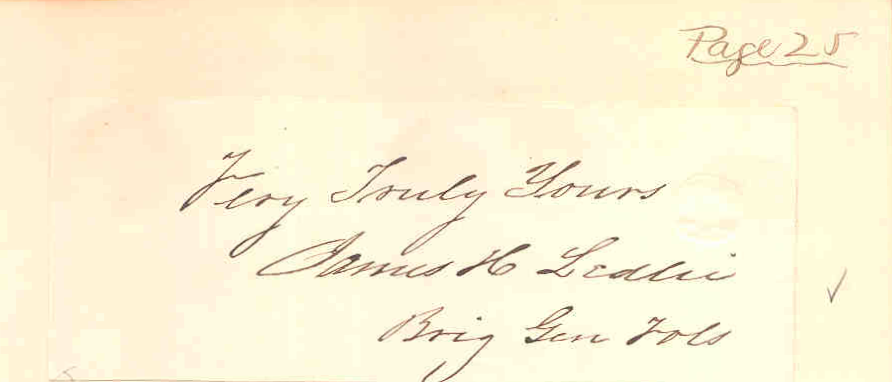 Page 25
Very Truly Yours
James H Ledlie
Brig Gen Vols